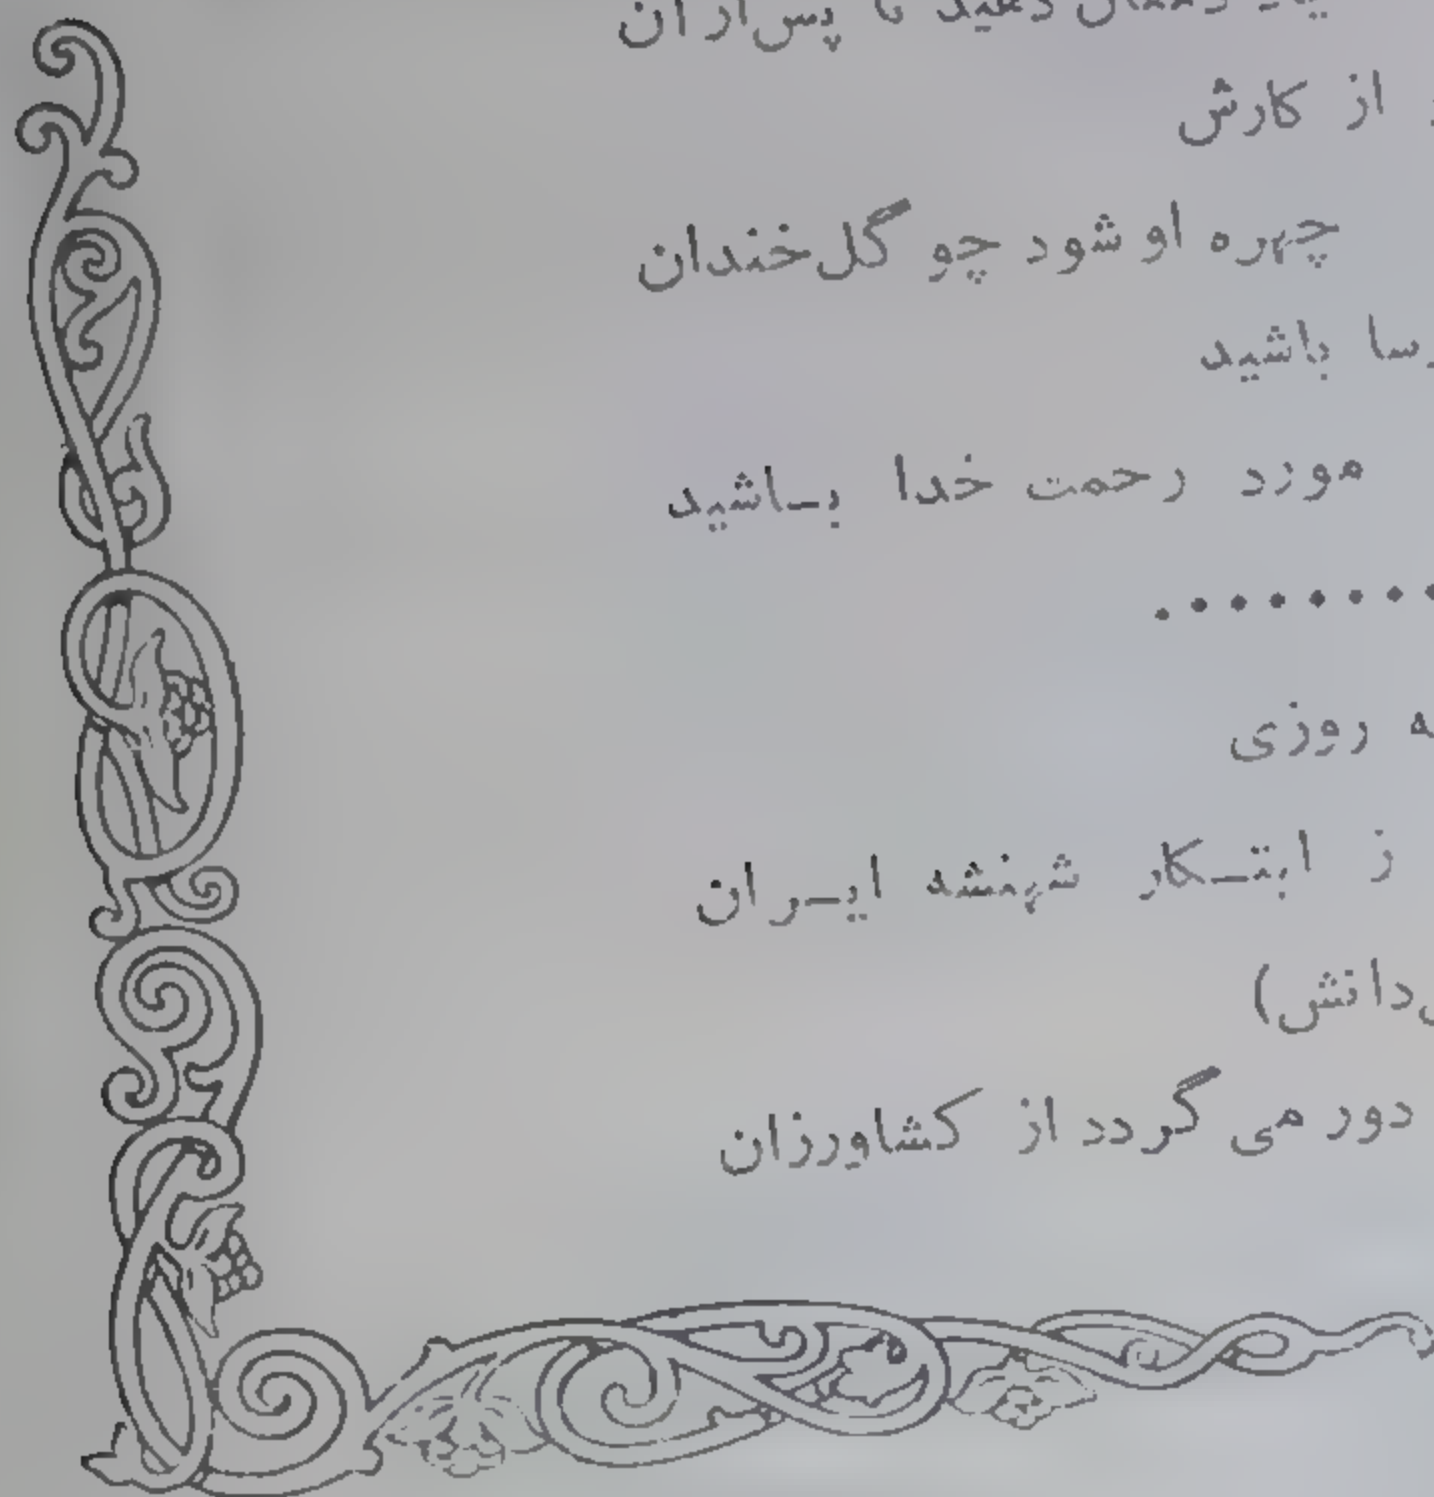 تا پس‌از آن
از کارش
چهره او شود چو گل‌خندان
باشید
مورد رحمت خدا بـاشید
........
روزی
ز ابتـکار شهنشه ایـران
دانش)
دور می گردد از کشاورزان